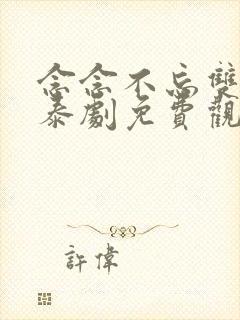 念念不忘雙
泰劇免費觀
許偉